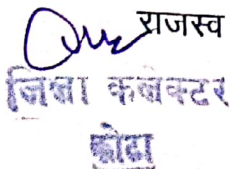 राजस्व
जिला कलेक्टर
कोटा